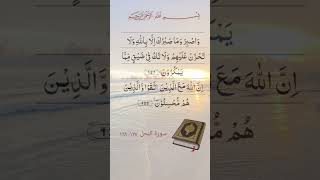 بِسْمِ اللَّهِ الرَّحْمَٰنِ الرَّحِيمِ
وَاصْبِرْ وَمَا صَبْرُكَ إِلَّا بِاللَّهِ وَلَا
تَحْزَنْ عَلَيْهِمْ وَلَا تَكُ فِي ضَيْقٍ مِّمَّا
يَمْكُرُونَ ١٢٧
إِنَّ اللَّهَ مَعَ الَّذِينَ اتَّقَوا وَّالَّذِينَ
هُم مُّحْسِنُونَ ١٢٨
سورة النحل ١٢٧-١٢٨